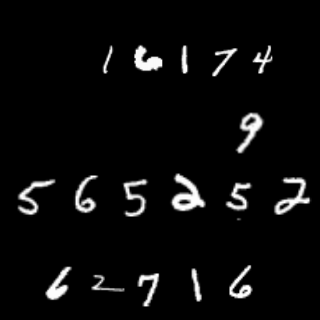 1 6 1 7 4
9
5 6 5 2 5 2
6 2 7 1 6